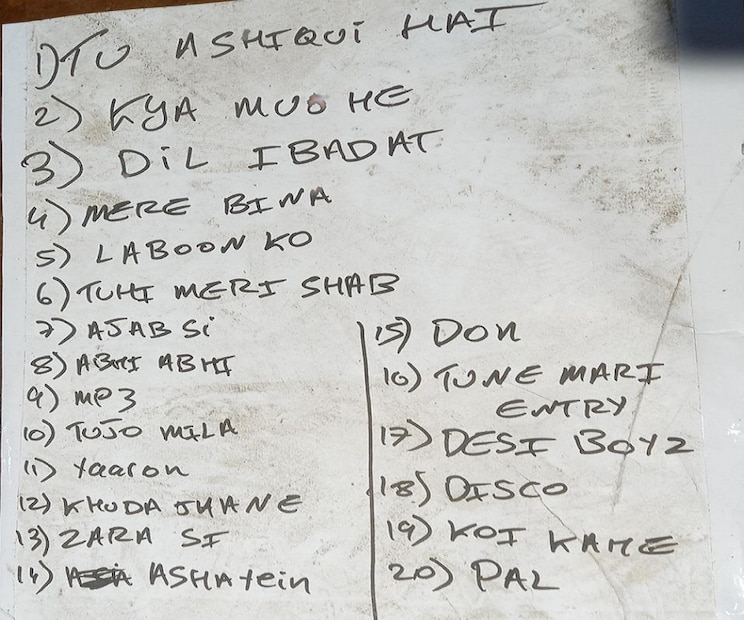 1) TU ASHIQUI HAI
2) KYA MUJHE
3) DIL IBADAT
4) MERE BINA
5) LABOON KO
6) TUHI MERI SHAB
7) AJAB Si
8) ABHI ABHI
9) MP3
10) TUJO MILA
11) Yaaron
12) KHUDA JHANE
13) ZARA SI
14) ASHAYein
15) DON
16) TUNE MARI
ENTRY
17) DESI BOYZ
18) DISCO
19) KOI KAHE
20) PAL